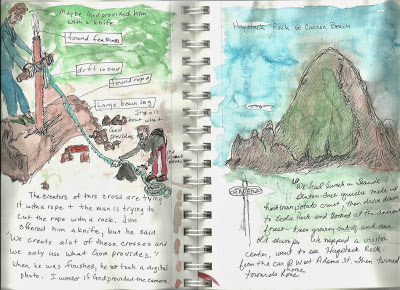 Maybe God provided him
with a knife
found feathers
driftwood
found rope
Large bean bag
It's all
about what
God
provides
The creators of this cross are tying
it with a rope + the man is trying to
cut the rope with a rock. Jim
offered him a knife, but he said
"We create alot of these crosses and
we only use what God provides."
When he was finished, he took a digital
photo. I wonder if God provided the camera.
Haystack Rock @ Cannon Beach
We had lunch in Seaside
gluten-free quiche made up
hashbrown potato crust, then drove down
to Ecola Park and looked at the
forest - trees growing out of
old stumps. We napped a visitor
center, went to see Haystack Rock
from the car @ West Adams St, then turned
towards home